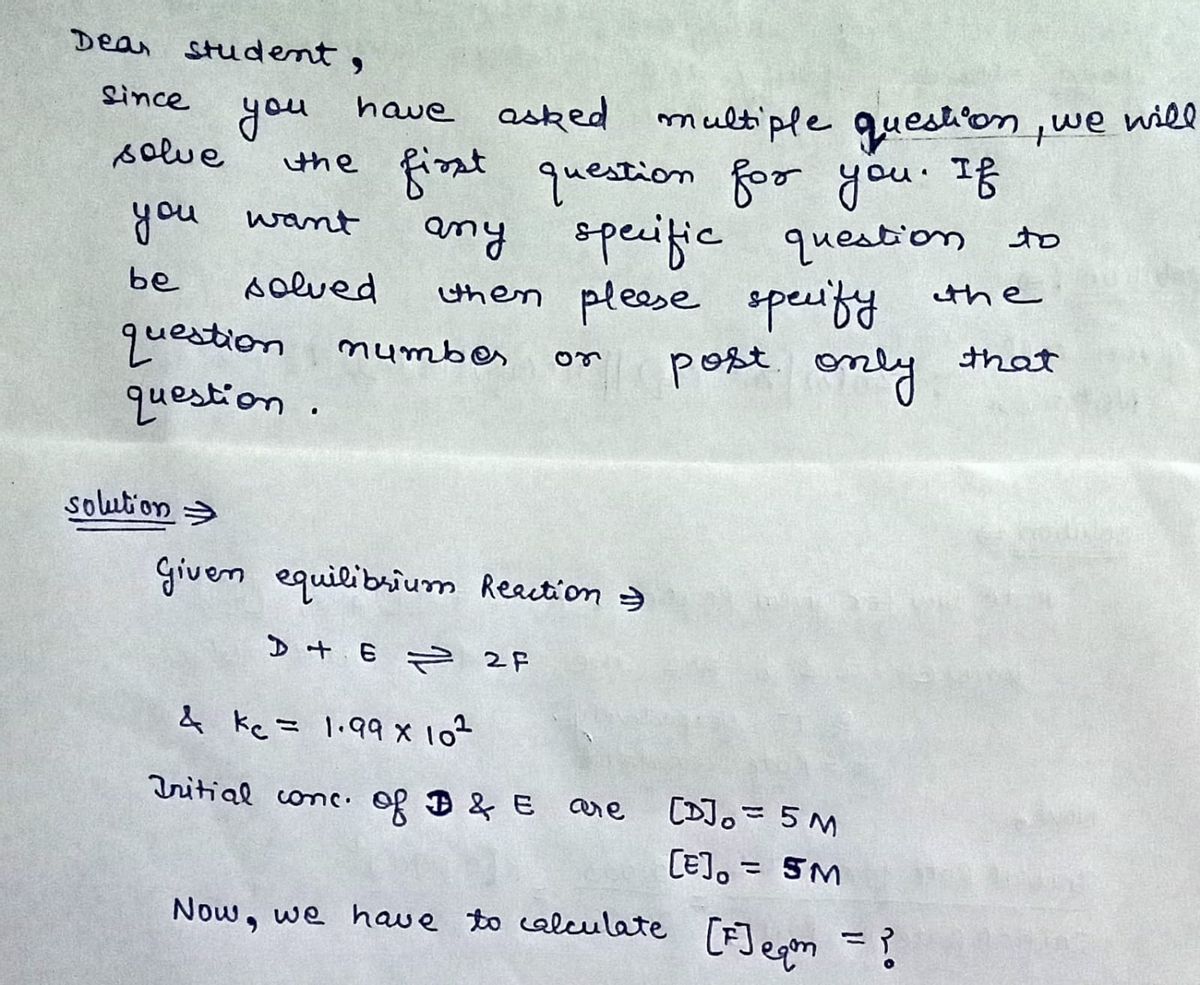 Dear student,
since you have asked multiple question, we will
solve the first question for you. If
you want any specific question to
be solved then please specify the
question number or post only that
question.
solution ⇒
Given equilibrium Reaction ⇒
D + E ⇌ 2F
& Kc = 1.99 × 10²
Initial conc. of D & E are [D]₀ = 5 M
[E]₀ = 5 M
Now, we have to calculate [F]eqm = ?